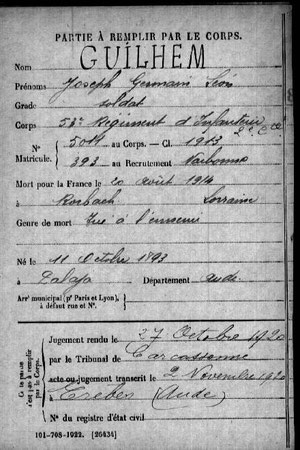 PARTIE À REMPLIR PAR LE CORPS.
Nom GUILHEM
Prénoms Joseph Germain Léon
Grade soldat
Corps 53e Régiment d'Infanterie
2e Cie
N° Matricule. 5011 au Corps. — Cl. 1913
393 au Recrutement Narbonne
Mort pour la France le 20 Août 1914
à Rorbach Lorraine
Genre de mort Tué à l'ennemi
Né le 11 Octobre 1893
à Palaja Département Aude
Arr' municipal (p' Paris et Lyon),
à défaut rue et N°.
Ce cadre n'est pas à remplir par le Corps.
Jugement rendu le 27 Octobre 1920
par le Tribunal de Carcassonne
acte ou jugement transcrit le 2 Novembre 1920
à Trèbes (Aude)
N° du registre d'état civil
101-708-1922. [26434]